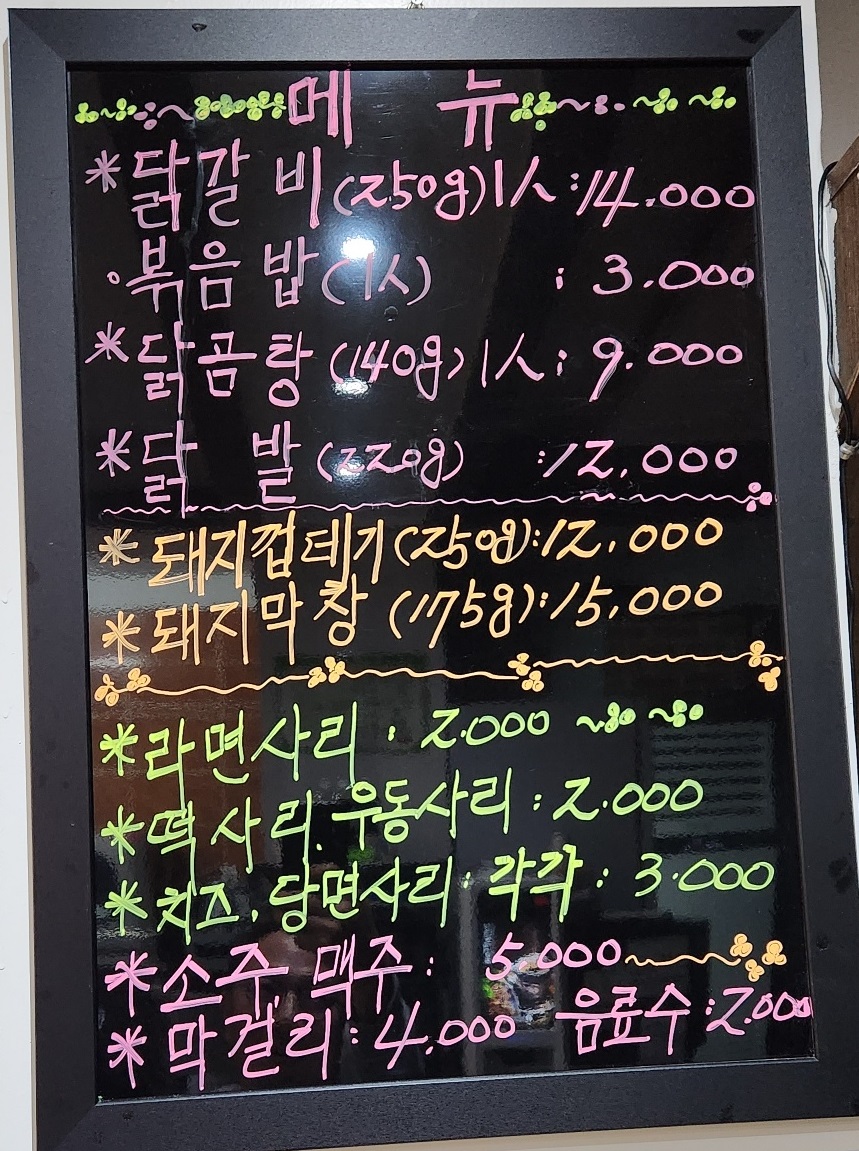 메 뉴
*닭갈비(250g)1人:14.000
◦볶음밥(1人) : 3.000
*닭곰탕(140g)1人: 9.000
*닭 발(220g) :12,000
*돼지껍데기(250g):12,000
*돼지막창(175g):15,000
*라면사리: 2.000
*떡사리. 우동사리: 2.000
*치즈, 당면사리: 각각: 3.000
*소주, 맥주: 5.000
*막걸리:4,000 음료수:2.000